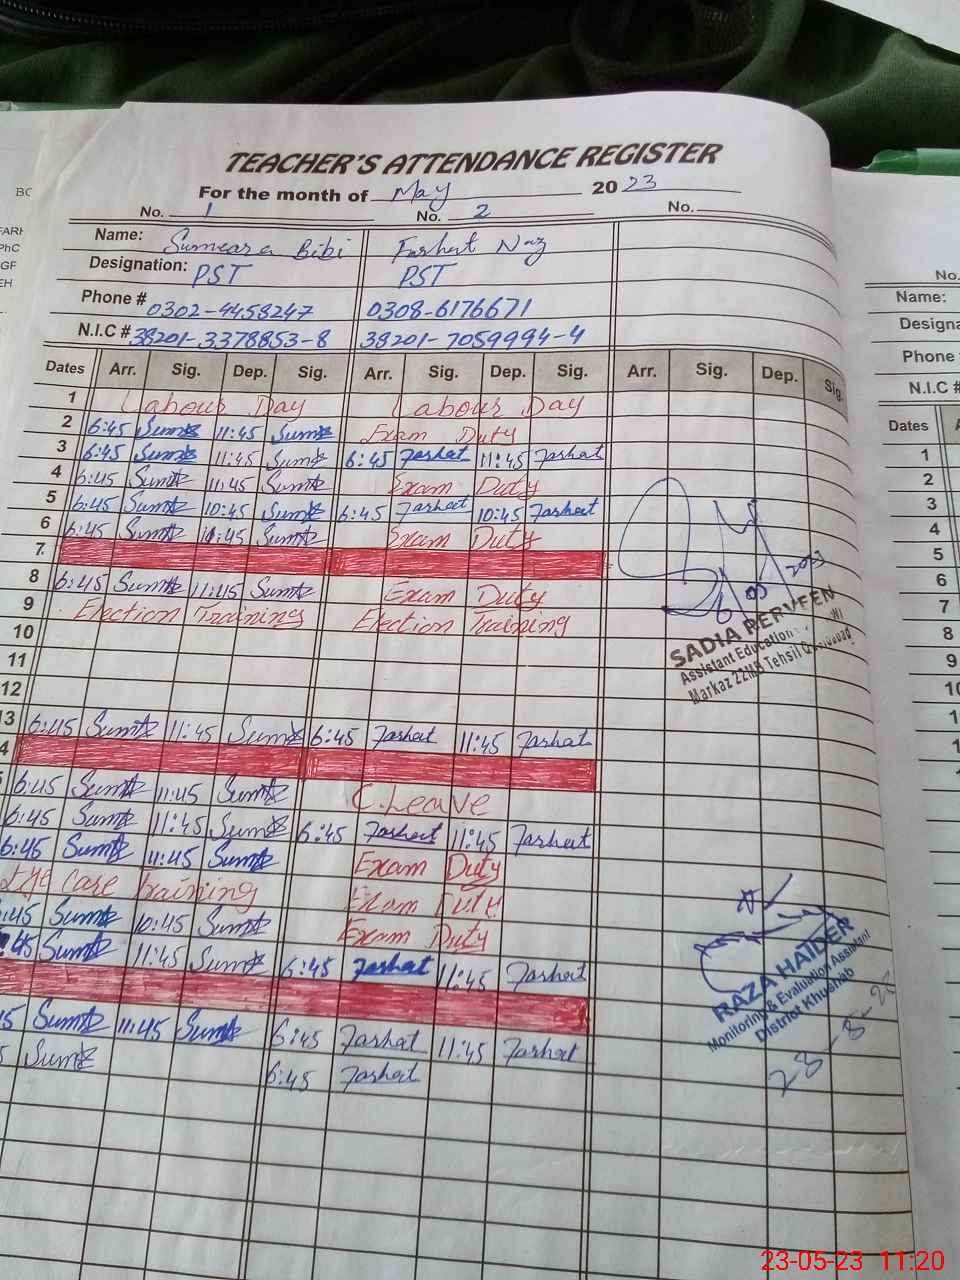 TEACHER'S ATTENDANCE REGISTER
For the month of May 2023
No. 1 No. 2 No.
Name: Sumeara Bibi Farhat Naz
Designation: PST PST
Phone # 0302-4458247 0308-6176671
N.I.C # 38201-3378853-8 38201-7059994-4
Dates Arr. Sig. Dep. Sig. Arr. Sig. Dep. Sig. Arr. Sig. Dep. Sig.
1 Labour Day Labour Day
2 6:45 11:45 Exam Duty
3 6:45 11:45 6:45 Farhat 11:45 Farhat
4 6:45 11:45 Exam Duty
5 6:45 10:45 6:45 Farhat 10:45 Farhat
6 6:45 Exam Duty
7
8 6:45 11:45 Exam Duty
9 Election Training Election Training
10
11
12
13 6:45 11:45 6:45 Farhat 11:45 Farhat
4
6:45 11:45 C.Leave
6:45 11:45 6:45 Farhat 11:45 Farhat
6:45 11:45 Exam Duty
Eye Care Training Exam Duty
:45 10:45 Exam Duty
45 11:45 6:45 Farhat 11:45 Farhat
11:45 6:45 Farhat 11:45 Farhat
6:45 Farhat
2023
SADIA PERVEEN
Assistant Education
Markaz 22MB Tehsil
RAZA HAIDER
Monitoring & Evaluation Assistant
District Khushab
BC
FARH
PhC
GF
EH
No.
Name:
Designa
Phone
N.I.C #
Dates
1
2
3
4
5
6
7
8
9
10
23-05-23 11:20